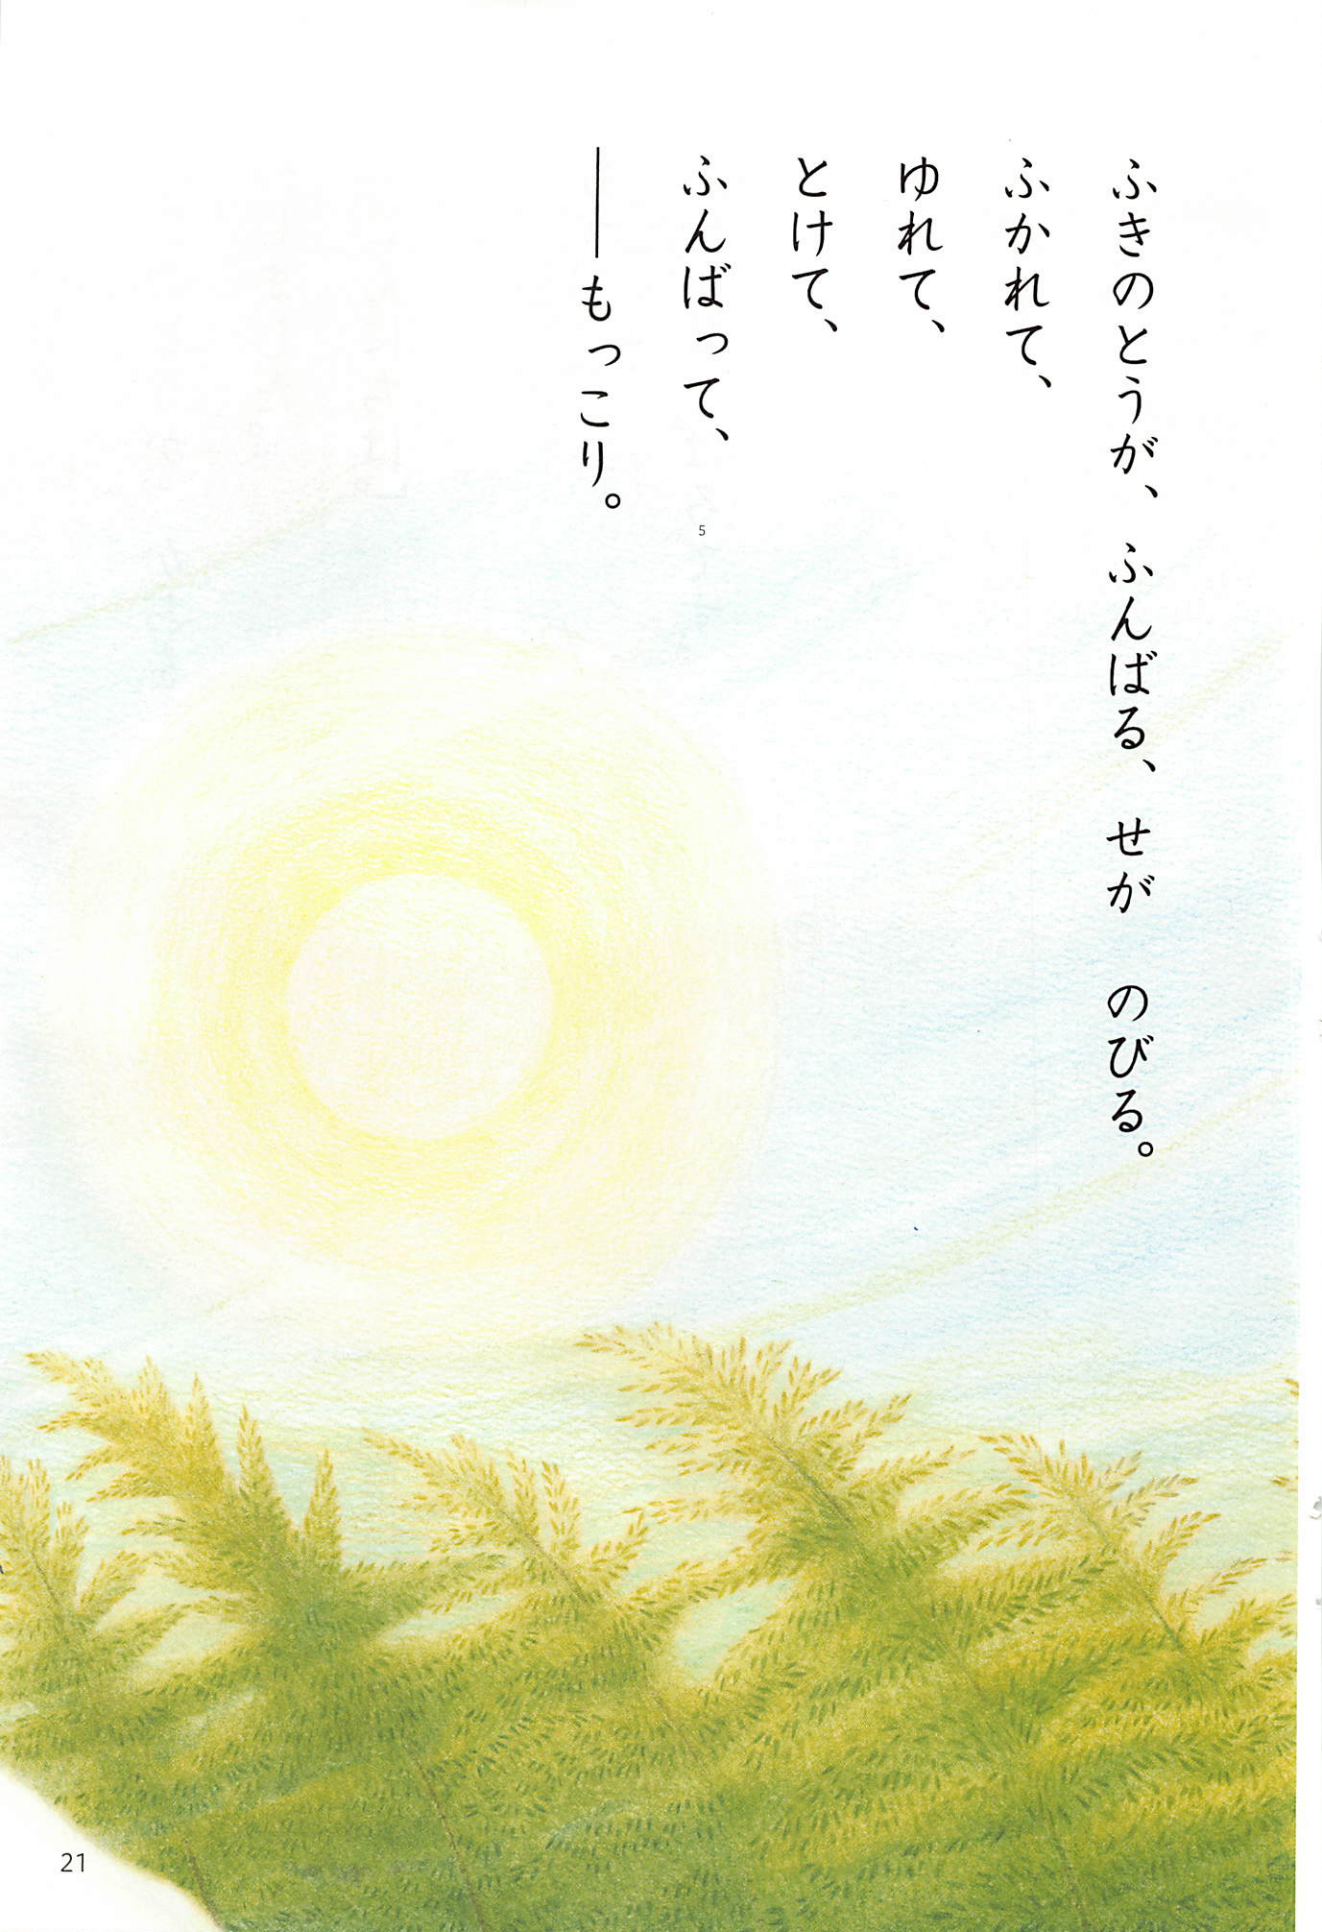 ふきのとうが、ふんばる、せが　のびる。
ふかれて、
ゆれて、
とけて、
ふんばって、
――もっこり。
5
21